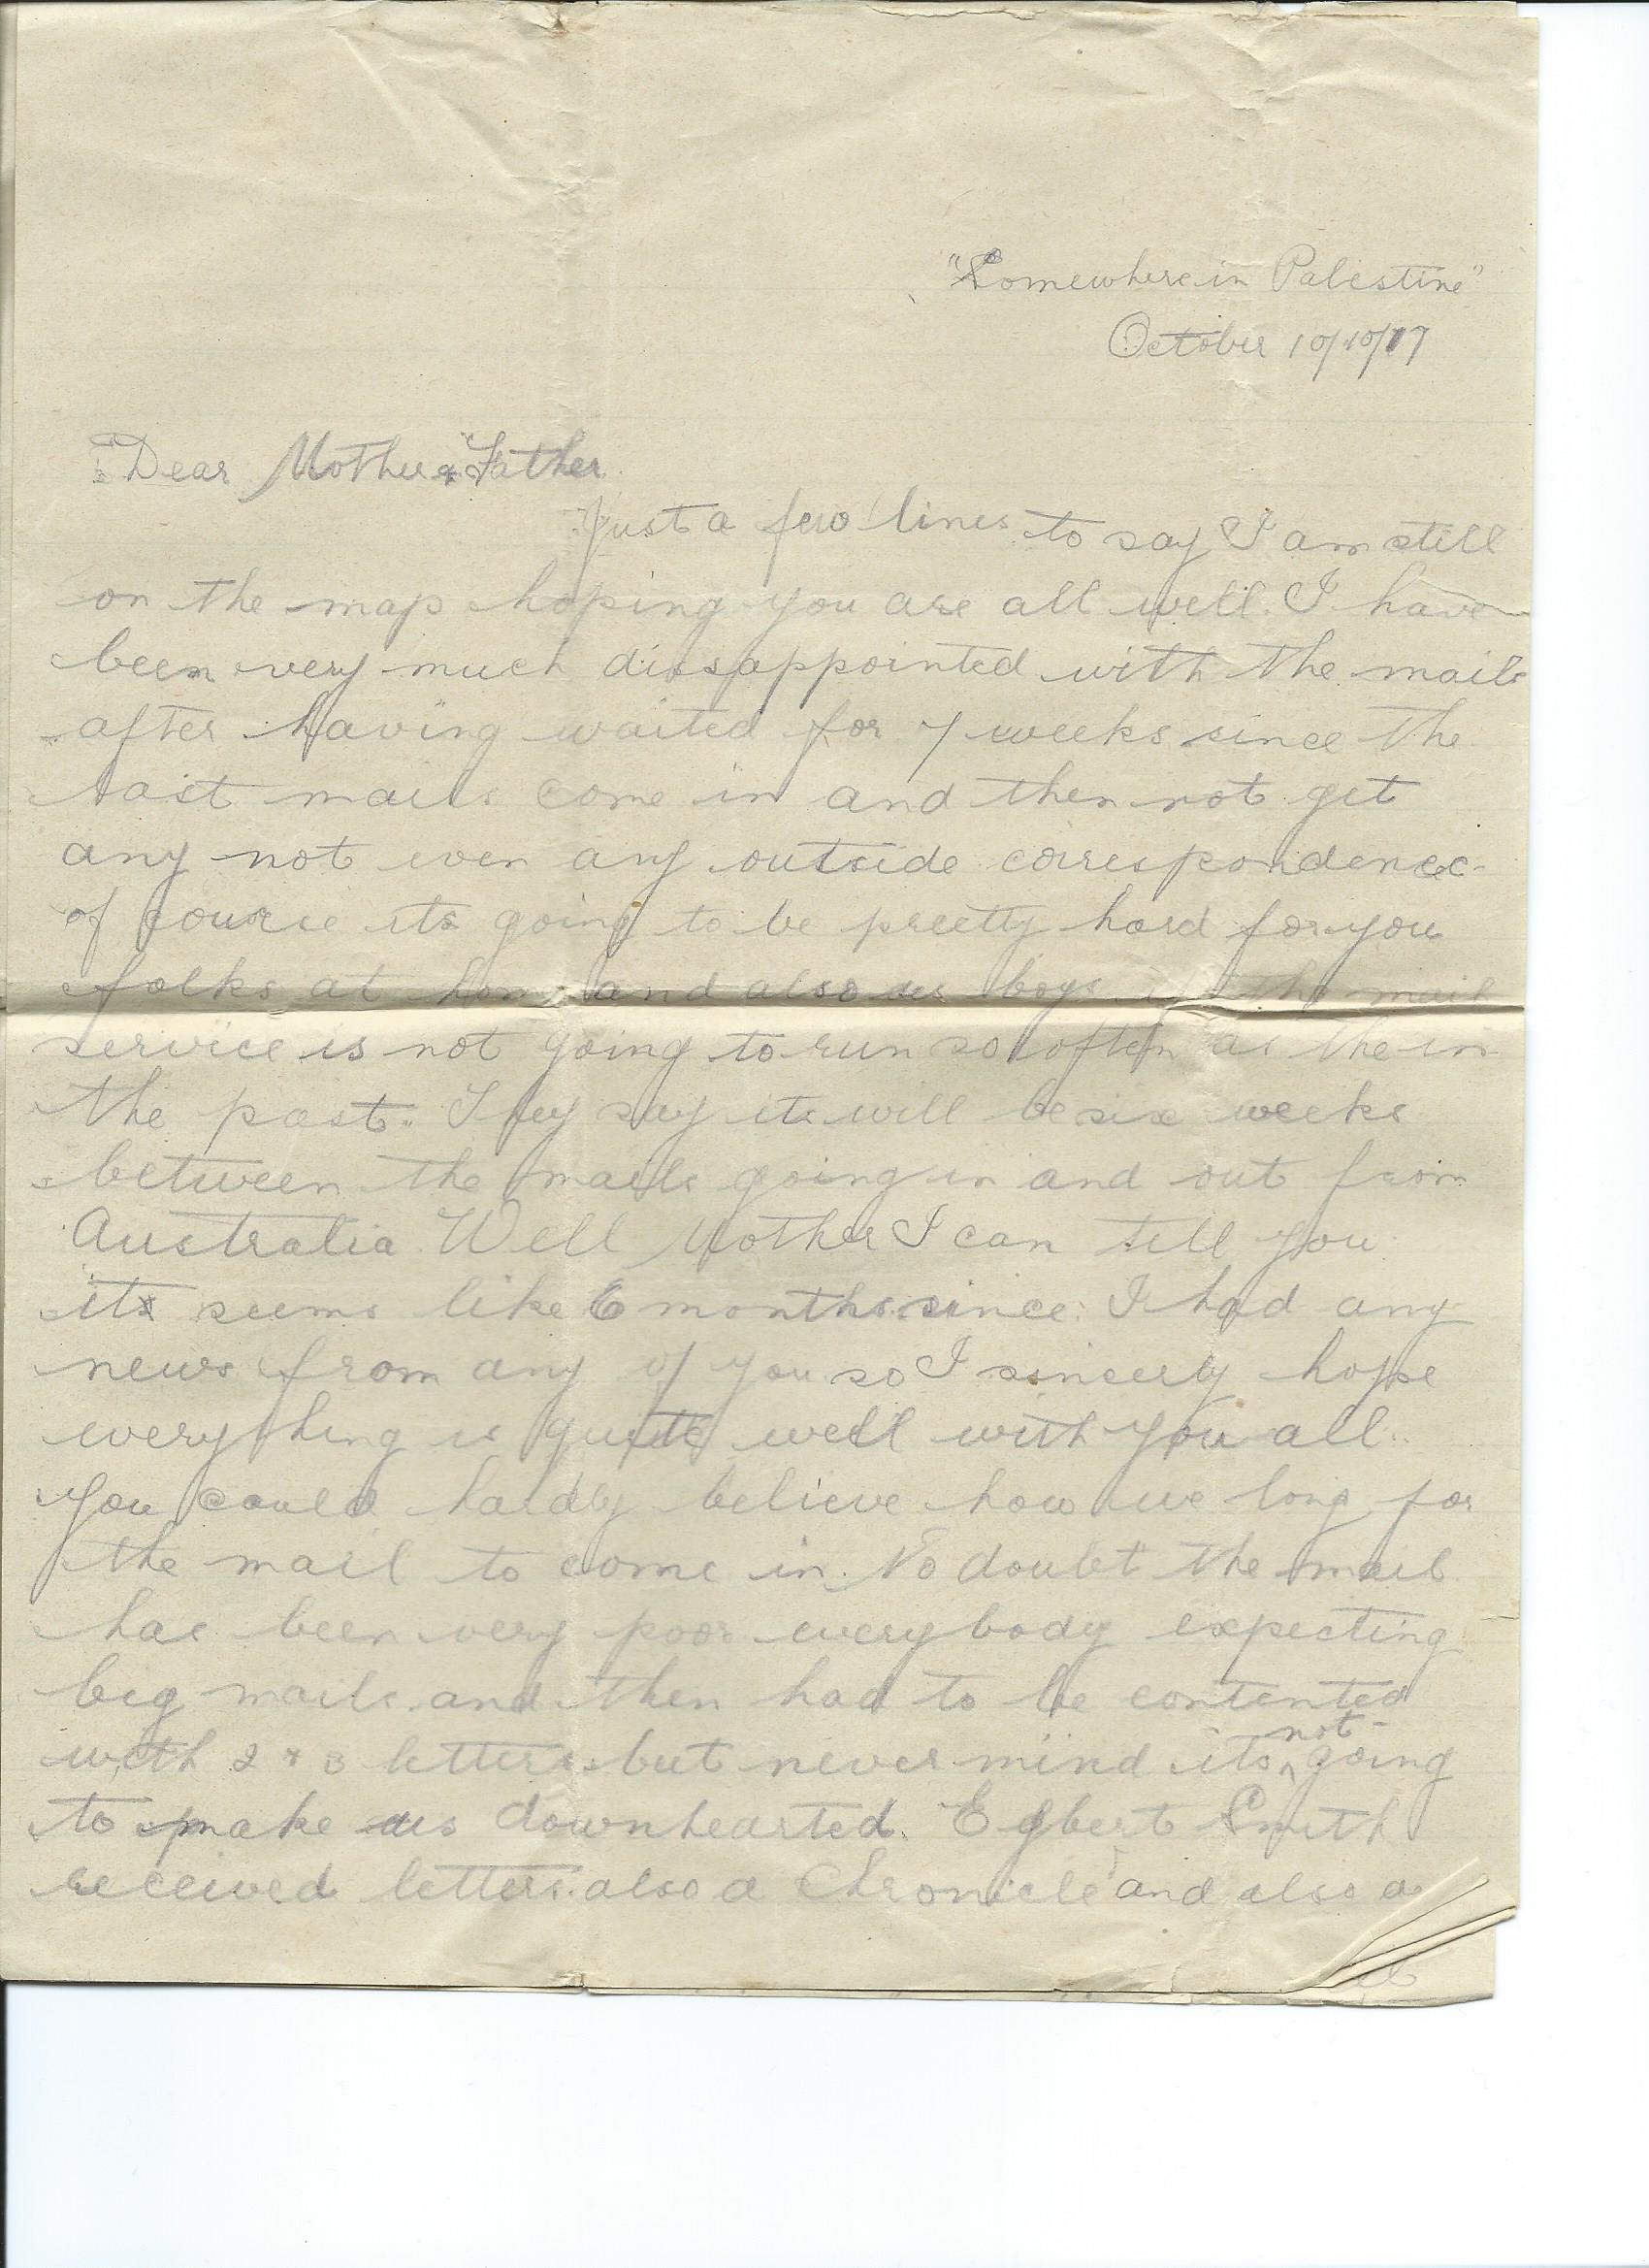 "Somewhere in Palestine"
October 10/10/17
Dear Mother & Father
Just a few lines to say I am still
on the map hoping you are all well. I have
been very much dissappointed with the mails
after having waited for 7 weeks since the
last mails come in and then not get
any not even any outside correspondence
of course its going to be preetty hard for you
folks at home and also us boys if the mail
service is not going to run so often as the in
the past. They say its will be six weeks
between the mails going in and out from
Australia Well Mother I can tell you
its seems like 6 months since I had any
news from any of you so I sincerly hope
everything is quite well with you all.
You could hardly believe how we long for
the mail to come in. No doubt the mail
has been very poor everybody expecting
big mails and then had to be contented
with 2 & 3 letters but never mind its not going
to make us downhearted. Egbert Smith
received letters also a Chronicle and also a